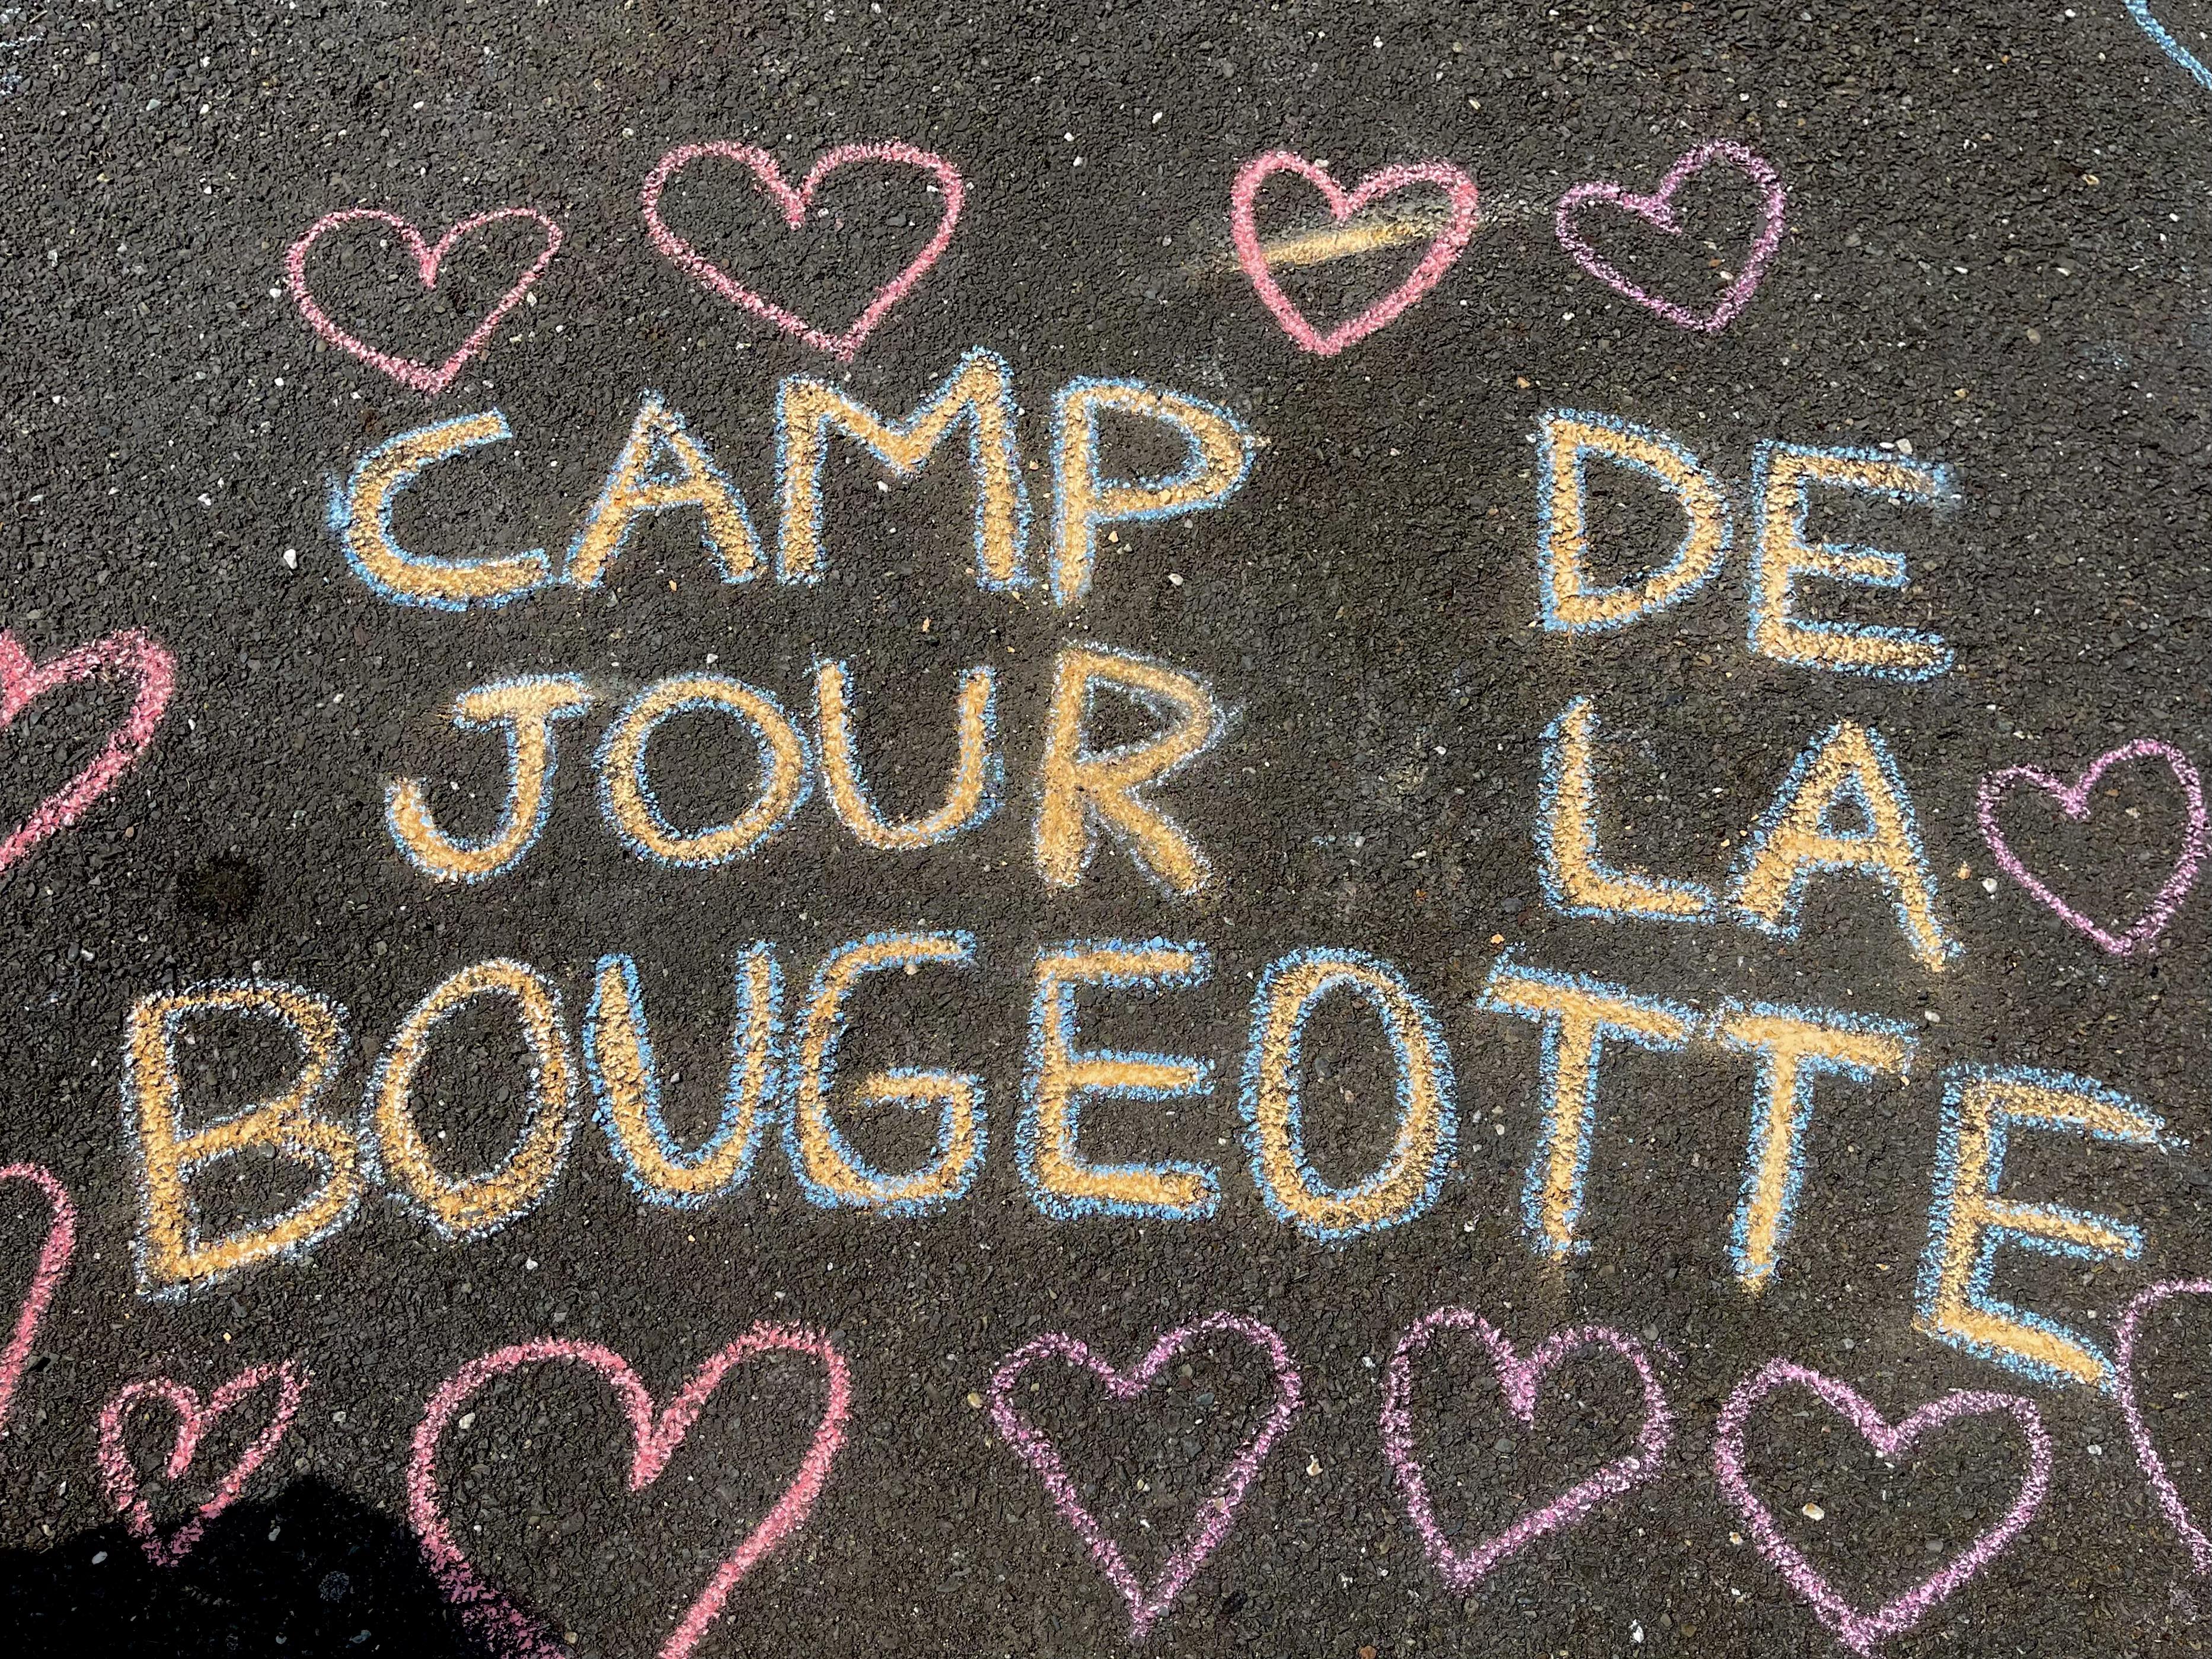 CAMP DE
JOUR LA
BOUGEOTTE